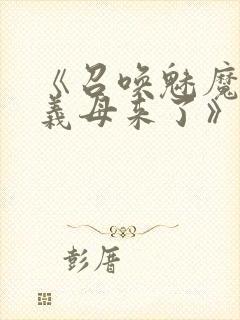 《召唤魅魔
义母来了》
彭厝